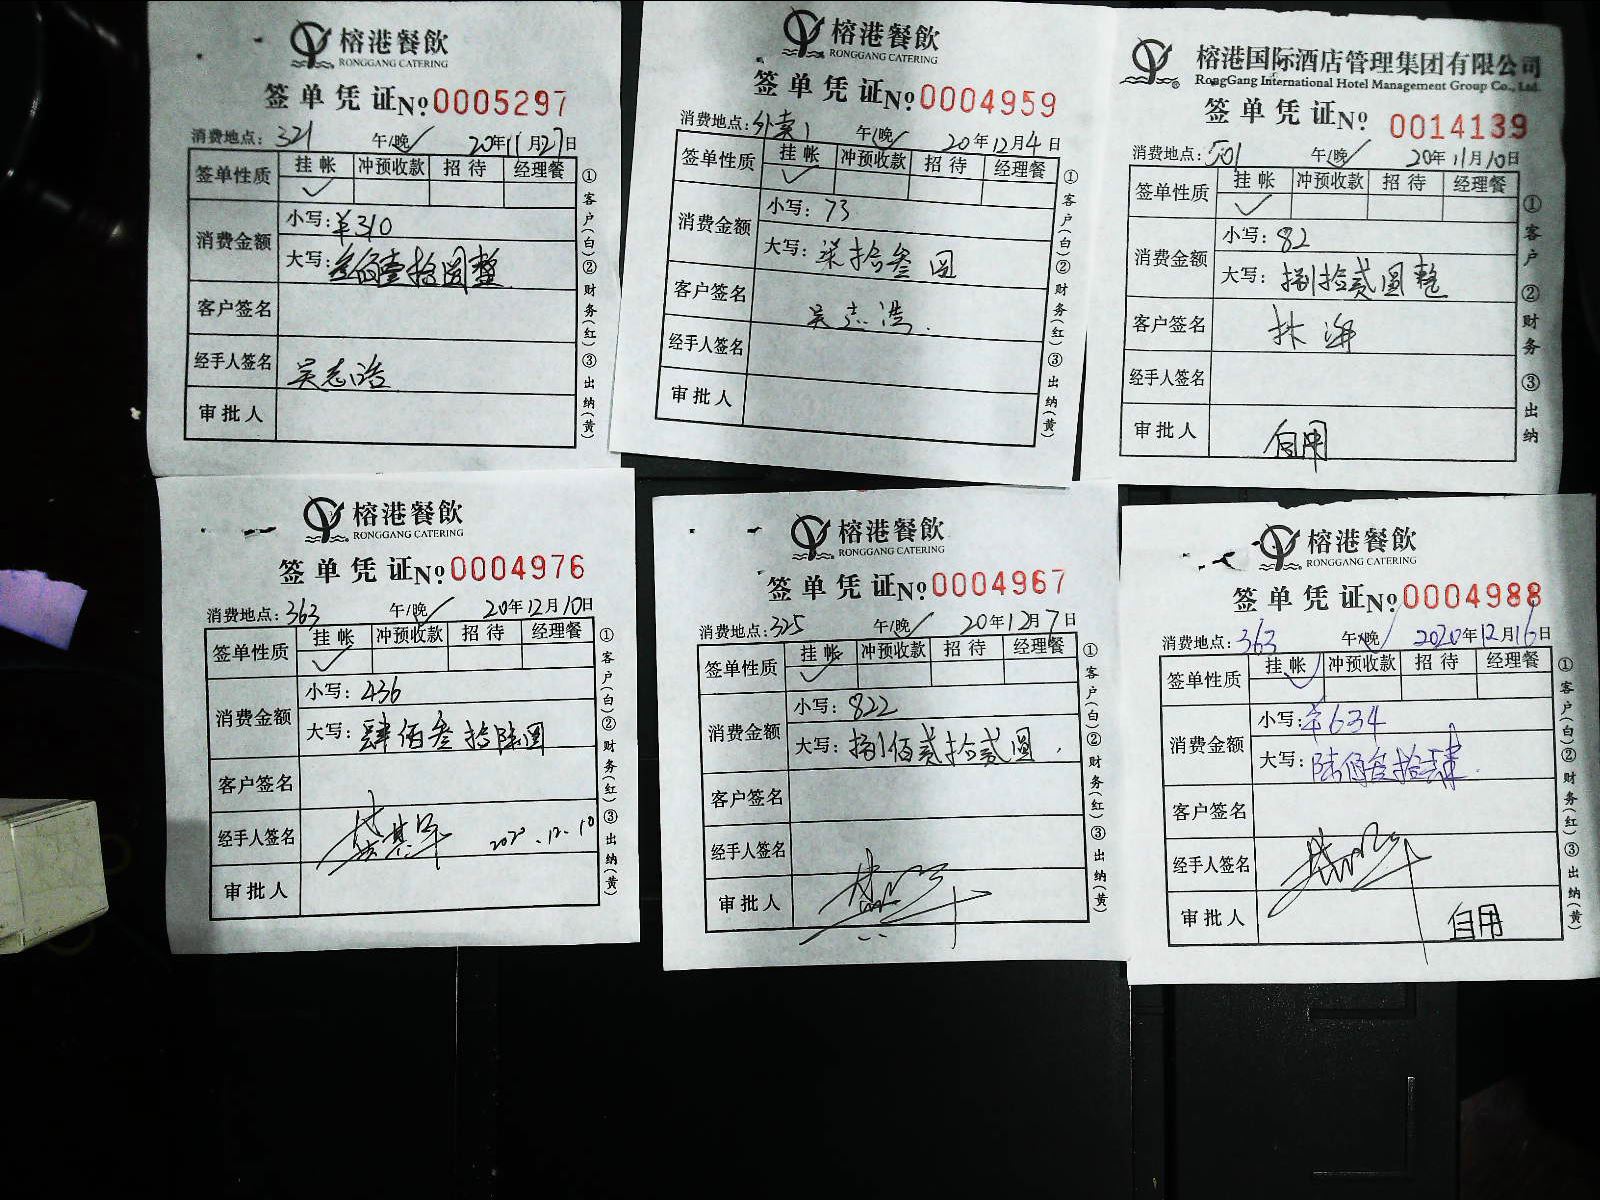 榕港餐飲
RONGGANG CATERING
签单凭证№0005297
消费地点: 321 午/晚✓ 20年11月27日
签单性质 挂帐 冲预收款 招待 经理餐
✓
消费金额 小写: ¥310
大写: 叁佰壹拾圆整
客户签名
经手人签名 吴志浩
审批人
①客户(白)②财务(红)③出纳(黄)
榕港餐飲
RONGGANG CATERING
签单凭证№0004959
消费地点: 外卖1 午/晚✓ 20年12月4日
签单性质 挂帐 冲预收款 招待 经理餐
✓
消费金额 小写: 73
大写: 柒拾叁圆
客户签名 吴志浩.
经手人签名
审批人
①客户(白)②财务(红)③出纳(黄)
榕港国际酒店管理集团有限公司
RongGang International Hotel Management Group Co., Ltd.
签单凭证№ 0014139
消费地点: 501 午/晚✓ 20年11月10日
签单性质 挂帐 冲预收款 招待 经理餐
✓
消费金额 小写: 82
大写: 捌拾贰圆整
客户签名
经手人签名
审批人 自用
①客户 ②财务 ③出纳
榕港餐飲
RONGGANG CATERING
签单凭证№0004976
消费地点: 363 午/晚✓ 20年12月10日
签单性质 挂帐 冲预收款 招待 经理餐
✓
消费金额 小写: 436
大写: 肆佰叁拾陆圆
客户签名
经手人签名 2020.12.10
审批人
①客户(白)②财务(红)③出纳(黄)
榕港餐飲
RONGGANG CATERING
签单凭证№0004967
消费地点: 325 午/晚✓ 20年12月7日
签单性质 挂帐 冲预收款 招待 经理餐
✓
消费金额 小写: 822
大写: 捌佰贰拾贰圆.
客户签名
经手人签名
审批人
①客户(白)②财务(红)③出纳(黄)
榕港餐飲
RONGGANG CATERING
签单凭证№0004988
消费地点: 363 午/晚✓ 2020年12月16日
签单性质 挂帐 冲预收款 招待 经理餐
✓
消费金额 小写: ¥634
大写: 陆佰叁拾肆.
客户签名
经手人签名
审批人 自用
①客户(白)②财务(红)③出纳(黄)